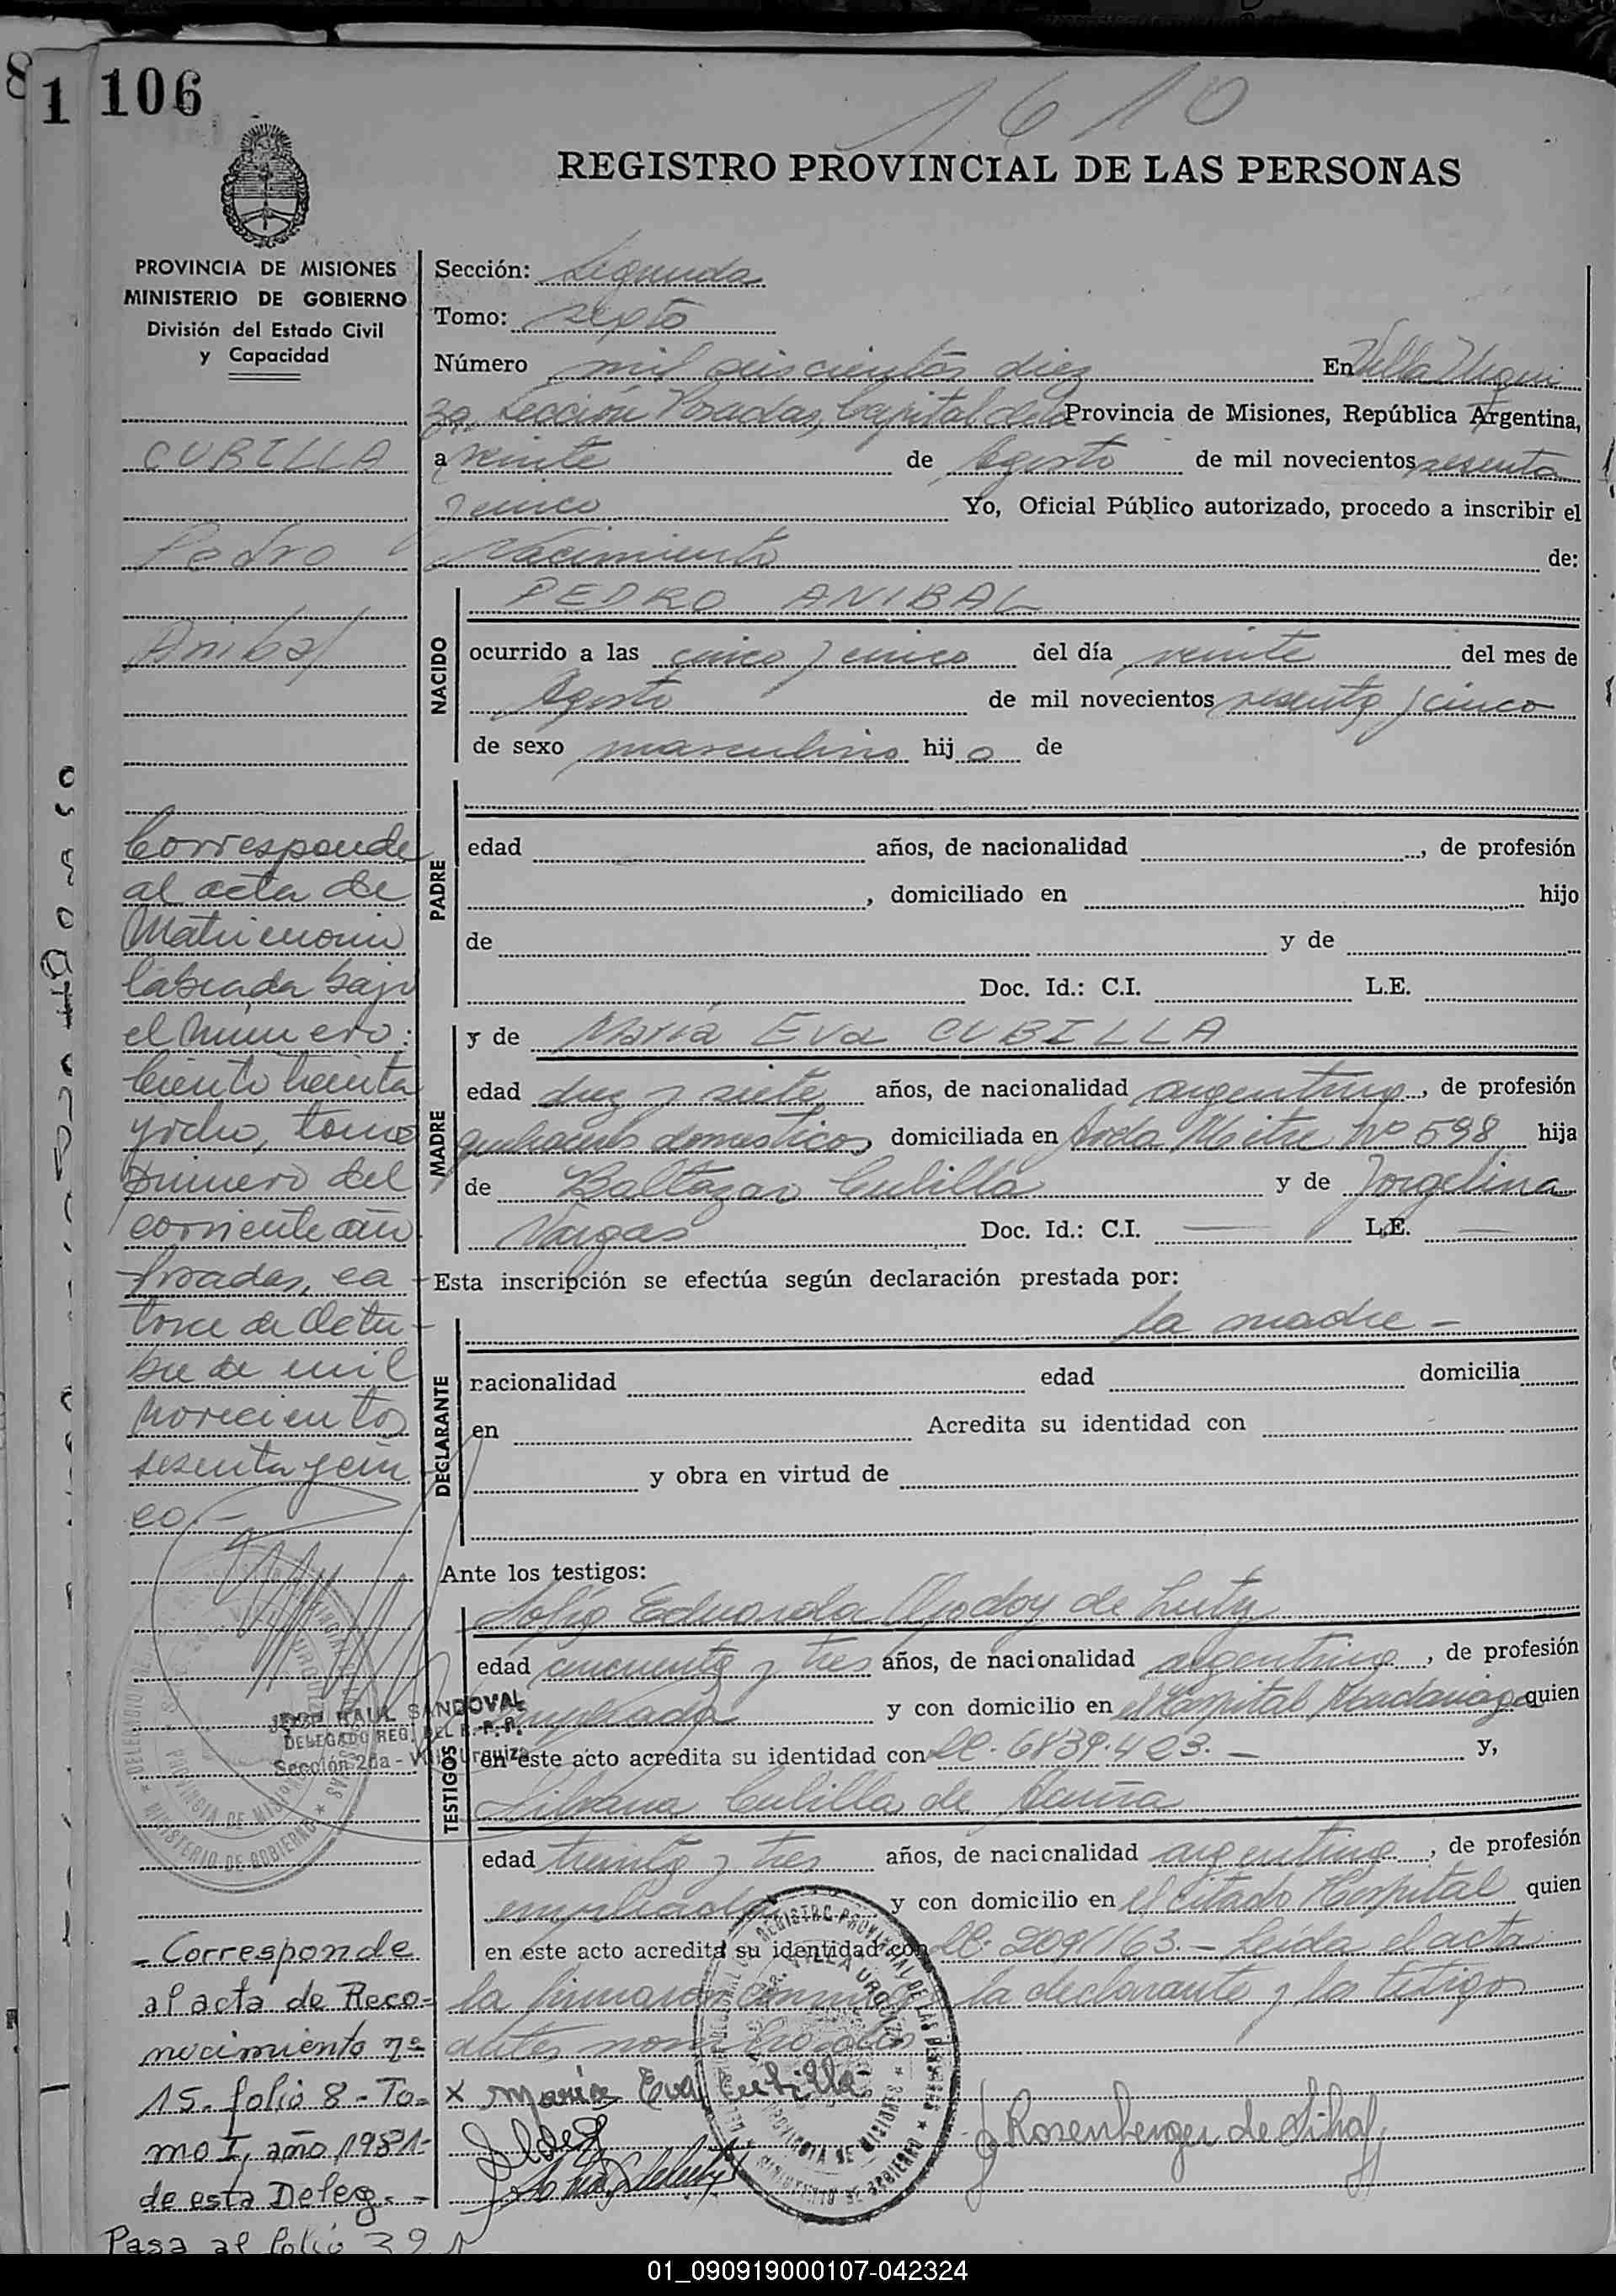 1 106
1610
REGISTRO PROVINCIAL DE LAS PERSONAS
PROVINCIA DE MISIONES
MINISTERIO DE GOBIERNO
División del Estado Civil
y Capacidad
CUBILLA
Pedro
Anibal
Corresponde
al acta de
Matrimonio
labrada bajo
el número:
Ciento treinta
y ocho, tomo
primero del
corriente año
Posadas, ca
torce de Octu-
bre de mil
novecientos
sesenta y cin
co.-
JOSE RAUL SANDOVAL
DELEGADO REG. DEL R. P. P.
Sección 2da - Villa Urquiza
- Corresponde
al acta de Reco-
nocimiento nº
15. folio 8 - To-
mo I, año 1981-
de esta Deleg. -
Pasa al folio 39
Sección: Segunda
Tomo: septo
Número mil seiscientos diez En Villa Urqui
za, Sección Posadas, Capital de la Provincia de Misiones, República Argentina,
a veinte de Agosto de mil novecientos sesenta
y cinco Yo, Oficial Público autorizado, procedo a inscribir el
Nacimiento de:
NACIDO
PEDRO ANIBAL
ocurrido a las cinco y cinco del día veinte del mes de
Agosto de mil novecientos sesenta y cinco
de sexo masculino hijo de
PADRE
edad años, de nacionalidad , de profesión
, domiciliado en hijo
de y de
Doc. Id.: C.I. L.E.
MADRE
y de María Eva CUBILLA
edad diez y siete años, de nacionalidad argentina, de profesión
quehaceres domesticos, domiciliada en Avda Mitre Nº 598 hija
de Baltazar Cubilla y de Jorgelina
Vargas Doc. Id.: C.I. — L.E. —
Esta inscripción se efectúa según declaración prestada por:
DECLARANTE
la madre -
nacionalidad edad domicilia
en Acredita su identidad con
y obra en virtud de
Ante los testigos:
TESTIGOS
Sofía Eduarda Godoy de Luty
edad cincuenta y tres años, de nacionalidad argentina, de profesión
empleada y con domicilio en el Hospital Madariaga quien
en este acto acredita su identidad con LC. 6839.423. - y,
Silvana Cubilla de Acuña
edad treinta y tres años, de nacionalidad argentina, de profesión
empleada y con domicilio en el citado Hospital quien
en este acto acredita su identidad con LC. 209/163. - Leída el acta
la firmaron conmigo la declarante y los testigos
antes nombrados
x Maria Eva Cubilla
Rosenberger de
01_090919000107-042324